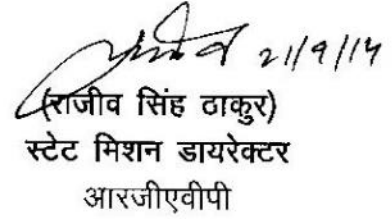 21/9/14
(राजीव सिंह ठाकुर)
स्टेट मिशन डायरेक्टर
आरजीएवीपी